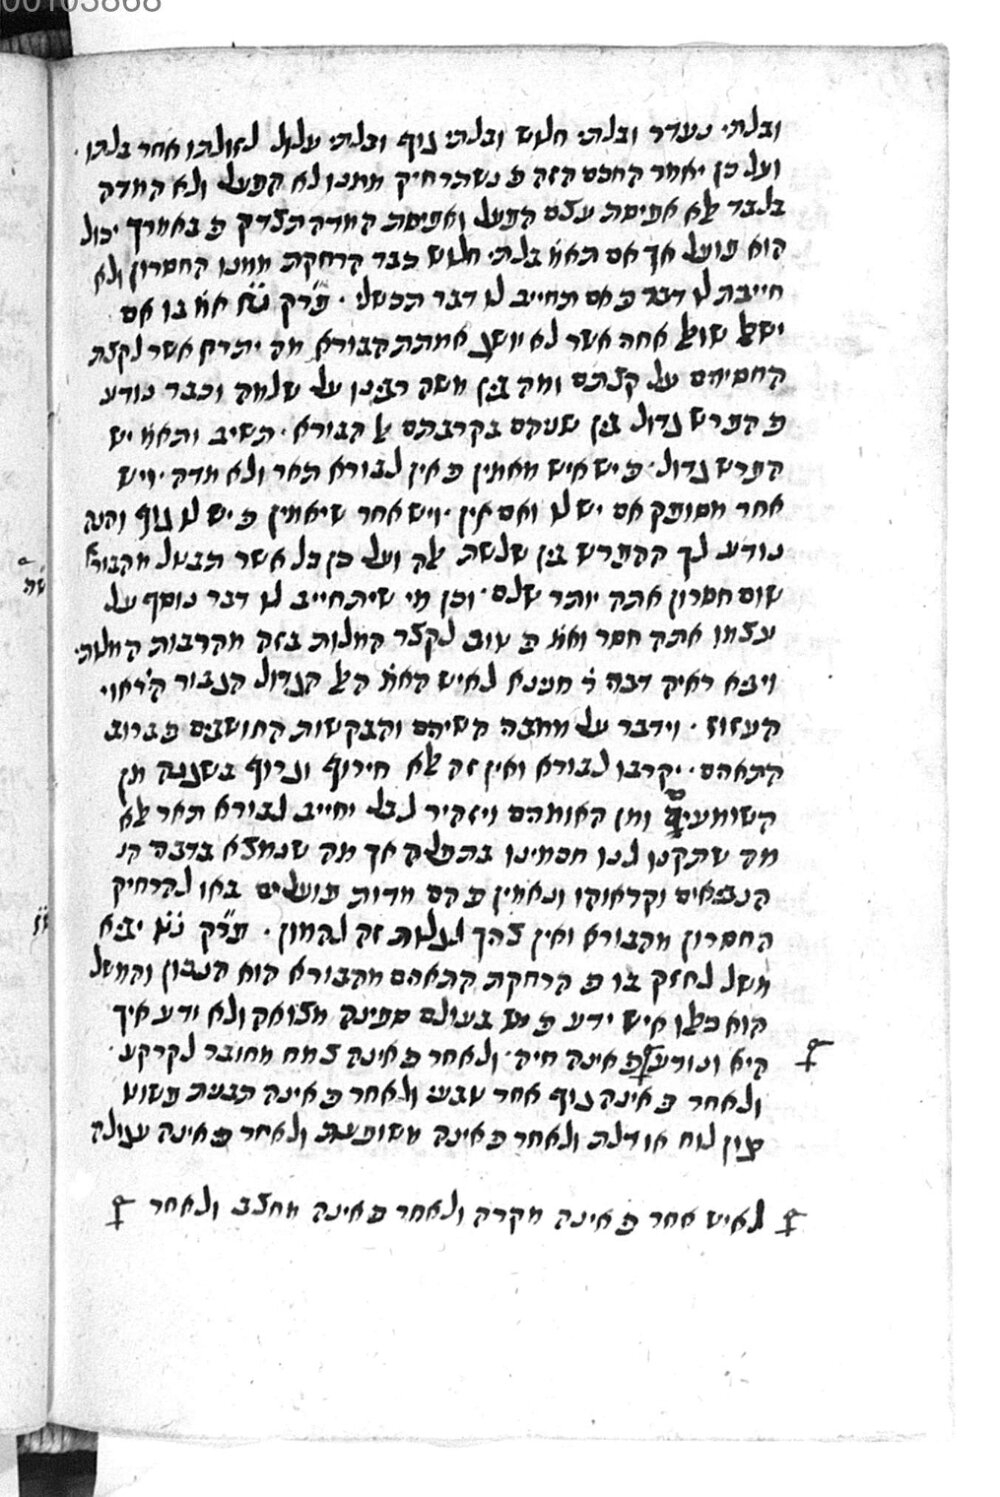 00103868
ובלתי נעדר ובלתי חלוש ובלתי גוף ובלתי עלול לזולתו אחר בלתו ·
ועל כן יאמר החכם הזה כי נשתרחיק ממנו לא הפעל ולא המדה
בלבד אלא אפיסת עצם הפעל ואפיסת המדה תצדק כי באמרך יכול
הוא פועל אך אם תאמ' בלתי חלוש כבר הרחקת ממנו החסרון ולא
חייבת לו דבר כי אם תחייב לו דבר תכשל · פר"ק נ"ט אמ' בו אם
ישאל שואל אחד אשר לא יושג אמתת הבורא מה יתרון אשר לקצת
החכמים על קצתם ומה בין משה רבינו על שלמה וכבר נודע
כי הפרש גדול בין שניהם בקרבתם אל הבורא · תשיב ותאמ' יש
הפרש גדול · כי יש איש מאמין כי אין לבורא תאר ולא מדה · ויש
אחר מסופק אם יש לו ואם אין · ויש אחר שיאמין כי יש לו גוף והנה
נודע לך ההפרש בין שלשת אלה ועל כן כל אשר תבטל מהבורא
שום חסרון אתה יותר שלם · וכן מי שיתחייב לו דבר נוסף על
עצמו אתה חסר ואמ' כי טוב לקצר המלות בזה מהרבות המלות ·
ויביא ראיה דבה ר' חנינא לאיש האמ' האל הגדול הגבור הנורא ·
העזוז · וידבר על מחברי השירים והבקשות החושבים כי ברוב
התארים · יקרבו לבורא ואין זה אלא חירוף וגדוף בשגגה מן
השומעים ומן האומרים ויזהיר לבל יחייב לבורא תאר אלא
מה שתקנו לנו חכמינו בתפלה אך מה שנמצא בדברי
הנביאים וקראוהו ונאמין כי הם מדות פועלים באו להרחיק
החסרון מהבורא ואין צורך לגלות זה להמון · פר"ק ס' יביא
משל לחזק בו כי הרחקת התארים מהבורא הוא הנכון והמשל
הוא כאלו איש ידע כי יש בעולם ספינה מצואה ולא ידע איך
היא ונודע כי אינה חיה · ולאחר כי אינה צמח מחובר לקרקע ·
ולאחר כי אינה גוף אחד טבעי ולאחר כי אינה תבנית פשוט
כגון לוח או דלת ולאחר כי אינה משופעת ולאחר כי אינה עגולה
לאיש אחר כי אינה מקרה ולאחר כי אינה מחצב ולאחר